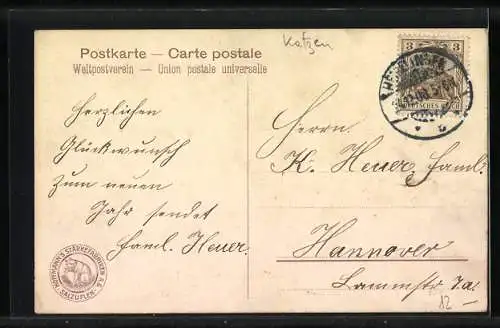 Katzen
Postkarte — Carte postale
Weltpostverein — Union postale universelle
3 3
DEUTSCHES REICH
Herzlichen
Glückwunsch
zum neuen
Jahr sendet
Faml. Heuer.
Herrn.
K. Heuer, Faml.
Hannover
Lammstr. 7a.
12 -
HOFFMANN'S STÄRKEFABRIKEN A.G.
SALZUFLEN